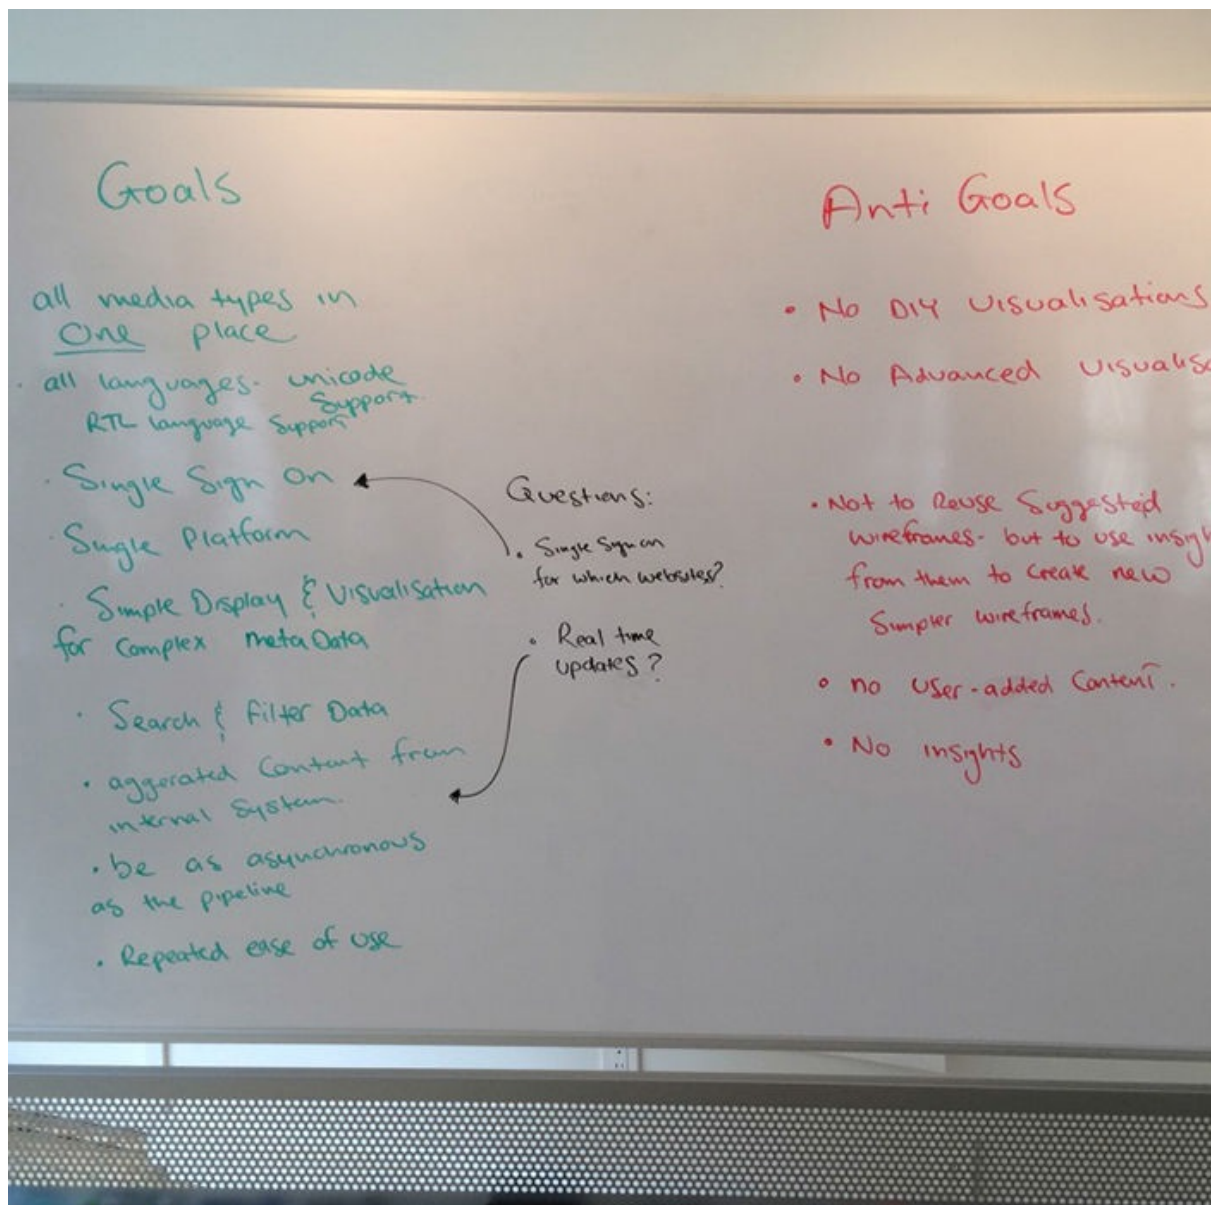 Goals
all media types in
One place
• all languages. unicode
Support.
RTL language Support
• Single Sign On
• Single Platform
• Simple Display & Visualisation
for complex metaData
• Search & Filter Data
• aggerated Content from
internal System.
• be as asynchronous
as the pipeline
• Repeated ease of use
Questions:
• Single Sign on
for which websites?
• Real time
updates?
Anti Goals
• No DIY Visualisations
• No Advanced
• Not to Reuse Suggested
wireframes - but to use
from them to create new
Simpler wireframes.
• no user-added Content.
• No insights